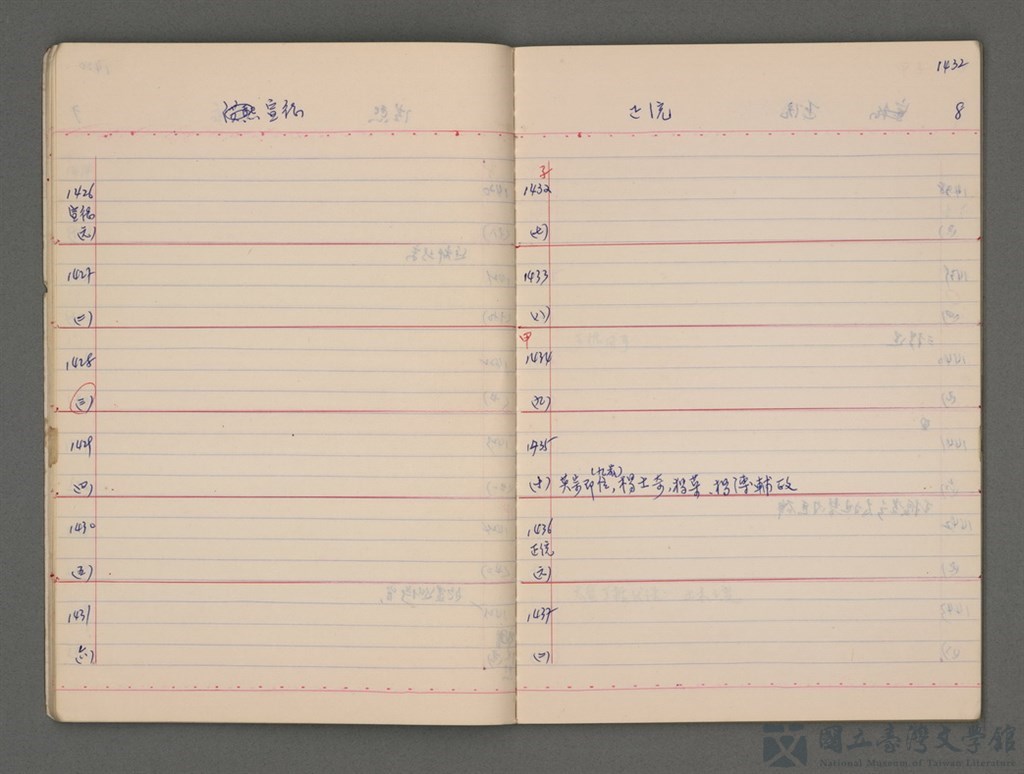 宣德
1426
宣德
(元)
1427
(二)
1428
(三)
1429
(四)
1430
(五)
1431
(六)
1432
正統
8
1432
(七)
1433
(八)
甲
1434
(九)
1435
(九歲)
(十) 英宗即位,楊士奇,楊榮、楊溥輔政
1436
正統
(元)
1437
(二)
國立臺灣文學館
National Museum of Taiwan Literature